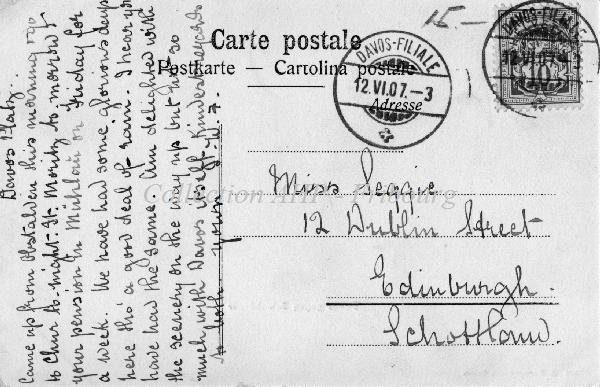 15.—
Carte postale
Postkarte — Cartolina postale
Adresse
DAVOS-FILIALE
12.VI.07.–3
DAVOS-FILIALE
12.VI.07.
10
Miss
12 Dublin Street
Edinburgh.
Schottland.
Collection AHP - Fribourg
Davos Platz.
Came up from Obstalden this morning go
to Chur to-night. St. Moritz to morrow &
your pension in Mühlau on Friday for
a week. We have had some glorious days
here tho' a good deal of rain. I hear you
have had the same. Am delighted with
the scenery on the way up but not so
much with Davos itself. Kindest regards
to both yours